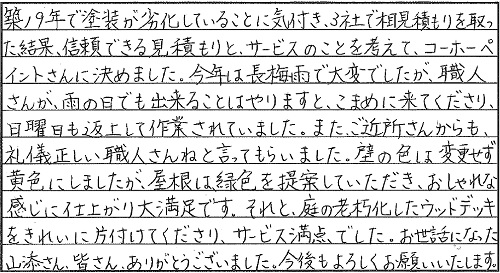 築19年で塗装が劣化していることに気付き、3社で相見積もりを取っ
た結果、信頼できる見積もりと、サービスのことを考えて、コーホーペ
イントさんに決めました。今年は長梅雨で大変でしたが、職人
さんが、雨の日でも出来ることはやりますと、こまめに来てくださり、
日曜日も返上して作業されていました。また、ご近所さんからも、
礼儀正しい職人さんねと言ってもらいました。壁の色は変更せず
黄色にしましたが、屋根は緑色を提案していただき、おしゃれな
感じに仕上がり大満足です。それと、庭の老朽化したウッドデッキ
をきれいに片付けてくださり、サービス満点でした。お世話になった
山添さん、皆さん、ありがとうございました。今後もよろしくお願いいたします。